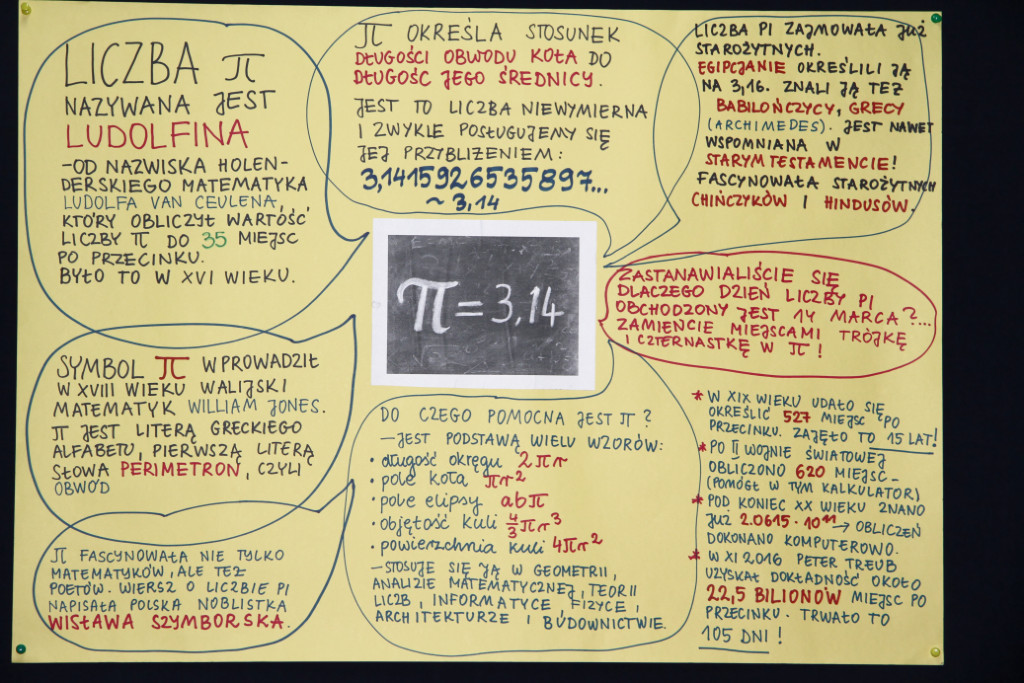 LICZBA π
NAZYWANA JEST
LUDOLFINA
-OD NAZWISKA HOLEN-
DERSKIEGO MATEMATYKA
LUDOLFA VAN CEULENA,
KTÓRY OBLICZYŁ WARTOŚĆ
LICZBY π DO 35 MIEJSC
PO PRZECINKU.
BYŁO TO W XVI WIEKU.
π OKREŚLA STOSUNEK
DŁUGOŚCI OBWODU KOŁA DO
DŁUGOŚĆ JEGO ŚREDNICY.
JEST TO LICZBA NIEWYMIERNA
I ZWYKLE POSŁUGUJEMY SIĘ
JEJ PRZYBLIŻENIEM:
3,1415926535897...
~ 3,14
LICZBA PI ZAJMOWAŁA JUŻ
STAROŻYTNYCH.
EGIPCJANIE OKREŚLILI JĄ
NA 3,16. ZNALI JĄ TEŻ
BABILOŃCZYCY, GRECY
(ARCHIMEDES). JEST NAWET
WSPOMNIANA W
STARYM TESTAMENCIE!
FASCYNOWAŁA STAROŻYTNYCH
CHIŃCZYKÓW I HINDUSÓW.
π = 3,14
ZASTANAWIALIŚCIE SIĘ
DLACZEGO DZIEŃ LICZBY PI
OBCHODZONY JEST 14 MARCA?...
ZAMIEŃCIE MIEJSCAMI TRÓJKĘ
I CZTERNASTKĘ W π!
SYMBOL π WPROWADZIŁ
W XVIII WIEKU WALIJSKI
MATEMATYK WILLIAM JONES.
π JEST LITERĄ GRECKIEGO
ALFABETU, PIERWSZĄ LITERĄ
SŁOWA PERIMETRON, CZYLI
OBWÓD
π FASCYNOWAŁA NIE TYLKO
MATEMATYKÓW, ALE TEŻ
POETÓW. WIERSZ O LICZBIE PI
NAPISAŁA POLSKA NOBLISTKA
WISŁAWA SZYMBORSKA.
DO CZEGO POMOCNA JEST π?
-JEST PODSTAWĄ WIELU WZORÓW:
• długość okręgu 2πr
• pole koła πr²
• pole elipsy abπ
• objętość kuli 4/3πr³
• powierzchnia kuli 4πr²
-STOSUJE SIĘ JĄ W GEOMETRII,
ANALIZIE MATEMATYCZNEJ, TEORII
LICZB, INFORMATYCE, FIZYCE,
ARCHITEKTURZE I BUDOWNICTWIE.
* W XIX WIEKU UDAŁO SIĘ
OKREŚLIĆ 527 MIEJSC PO
PRZECINKU. ZAJĘŁO TO 15 LAT!
* PO II WOJNIE ŚWIATOWEJ
OBLICZONO 620 MIEJSC -
(POMÓGŁ W TYM KALKULATOR)
* POD KONIEC XX WIEKU ZNANO
JUŻ 2.0615 · 10¹¹ → OBLICZEŃ
DOKONANO KOMPUTEROWO.
* W XI 2016 PETER TREUB
UZYSKAŁ DOKŁADNOŚĆ OKOŁO
22,5 BILIONÓW MIEJSC PO
PRZECINKU. TRWAŁO TO
105 DNI!